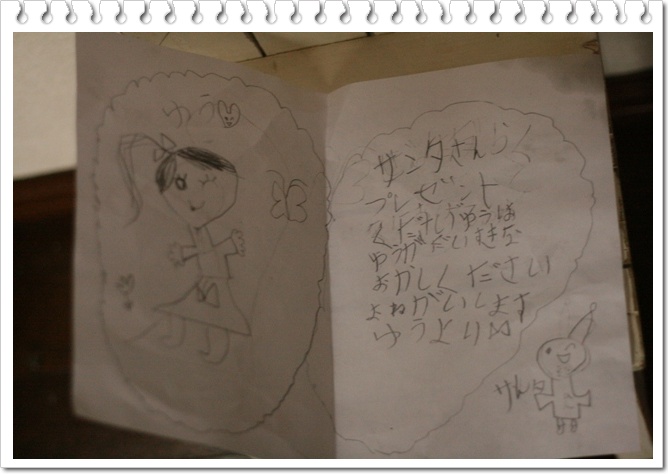 ゆう
サンタさんらく
プレゼント
くださしゆうは
ゆうがだいすきな
おかしください
よねがいします
ゆうより
サンタ